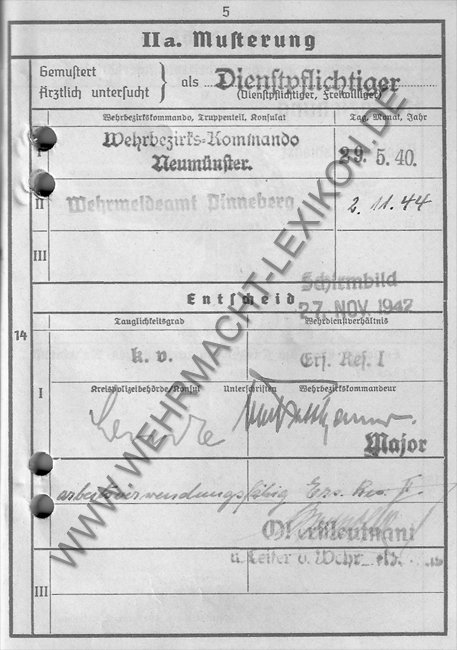 5
IIa. Musterung
Gemustert
Ärztlich untersucht } als Dienstpflichtiger
(Dienstpflichtiger, Freiwilliger)
Wehrbezirkskommando, Truppenteil, Konsulat Tag, Monat, Jahr
I Wehrbezirks-Kommando
Neumünster. 29. 5. 40.
II Wehrmeldeamt Pinneberg 2. 11. 44
III
Schirmbild
27. NOV. 1942
Entscheid
Tauglichkeitsgrad Wehrdienstverhältnis
14
k. v. Ers. Res. I
I Kreispolizeibehörde/Konsul Unterschriften Wehrbezirkskommandeur
Major
arbeitsverwendungsfähig Ers. Res. II.
Oberstleutnant
u. Leiter d. Wehr
III
WWW.WEHRMACHT-LEXIKON.DE